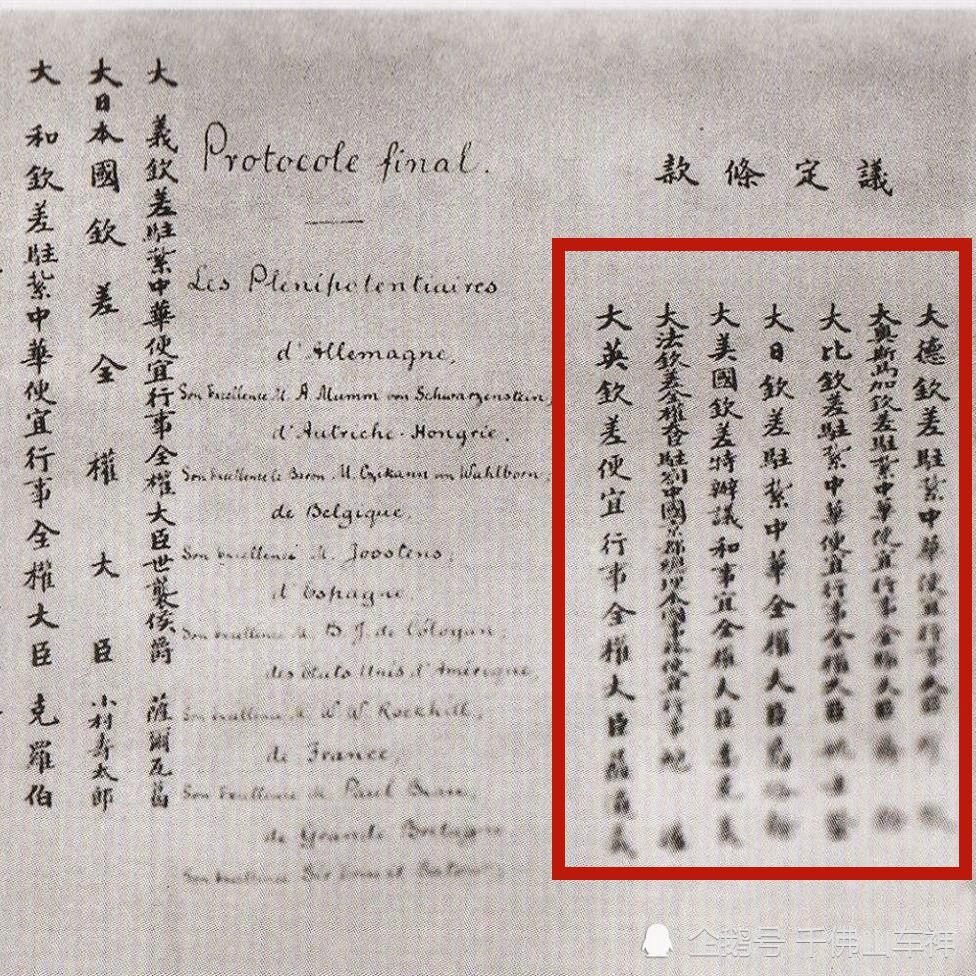 議定條款
大德欽差駐紮中華便宜行事
大奧斯馬加欽差駐紮中華便宜行事全權大臣
大比欽差駐紮中華便宜行事全權大臣
大日欽差駐紮中華全權大臣
大美國欽差特辦議和事宜全權大臣柔克義
大法欽差全權大臣駐劄中國京都總理本國事務便宜行事鮑
大英欽差便宜行事全權大臣薩道義
Protocole final.
Les Plénipotentiaires
d'Allemagne,
Son Excellence M. A. Mumm von Schwarzenstein;
d'Autriche-Hongrie,
Son Excellence le Baron M. Czikann von Wahlborn;
de Belgique,
Son Excellence M. Joostens;
d'Espagne,
Son Excellence M. B. J. de Cologan;
des États Unis d'Amérique,
Son Excellence M. W. W. Rockhill;
de France,
Son Excellence M. Paul Beau;
de Grande Bretagne,
Son Excellence Sir Ernest Satow;
大義欽差駐紮中華便宜行事全權大臣世襲侯爵 薩爾瓦葛
大日本國欽差全權大臣 小村壽太郎
大和欽差駐紮中華便宜行事全權大臣 克羅伯
企鹅号 千佛山车祥